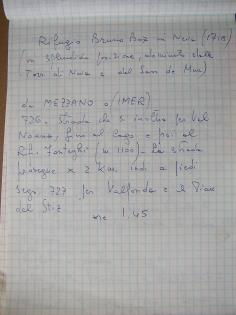 Rifugio Bruno Boz in Neva (1718)
(in splendida posizione, dominato dalle
Torri di Neva e dal Sass de Mura)
da MEZZANO o (IMER)
726. Strada che si inoltra per Val
Noana, fino al lago e poi al
Rif. Fonteghi (m 1100) - La strada
prosegue x 2 Km. indi a piedi
segn. 727 per Valfonda e il Pian
del Stiz
ore 1,45